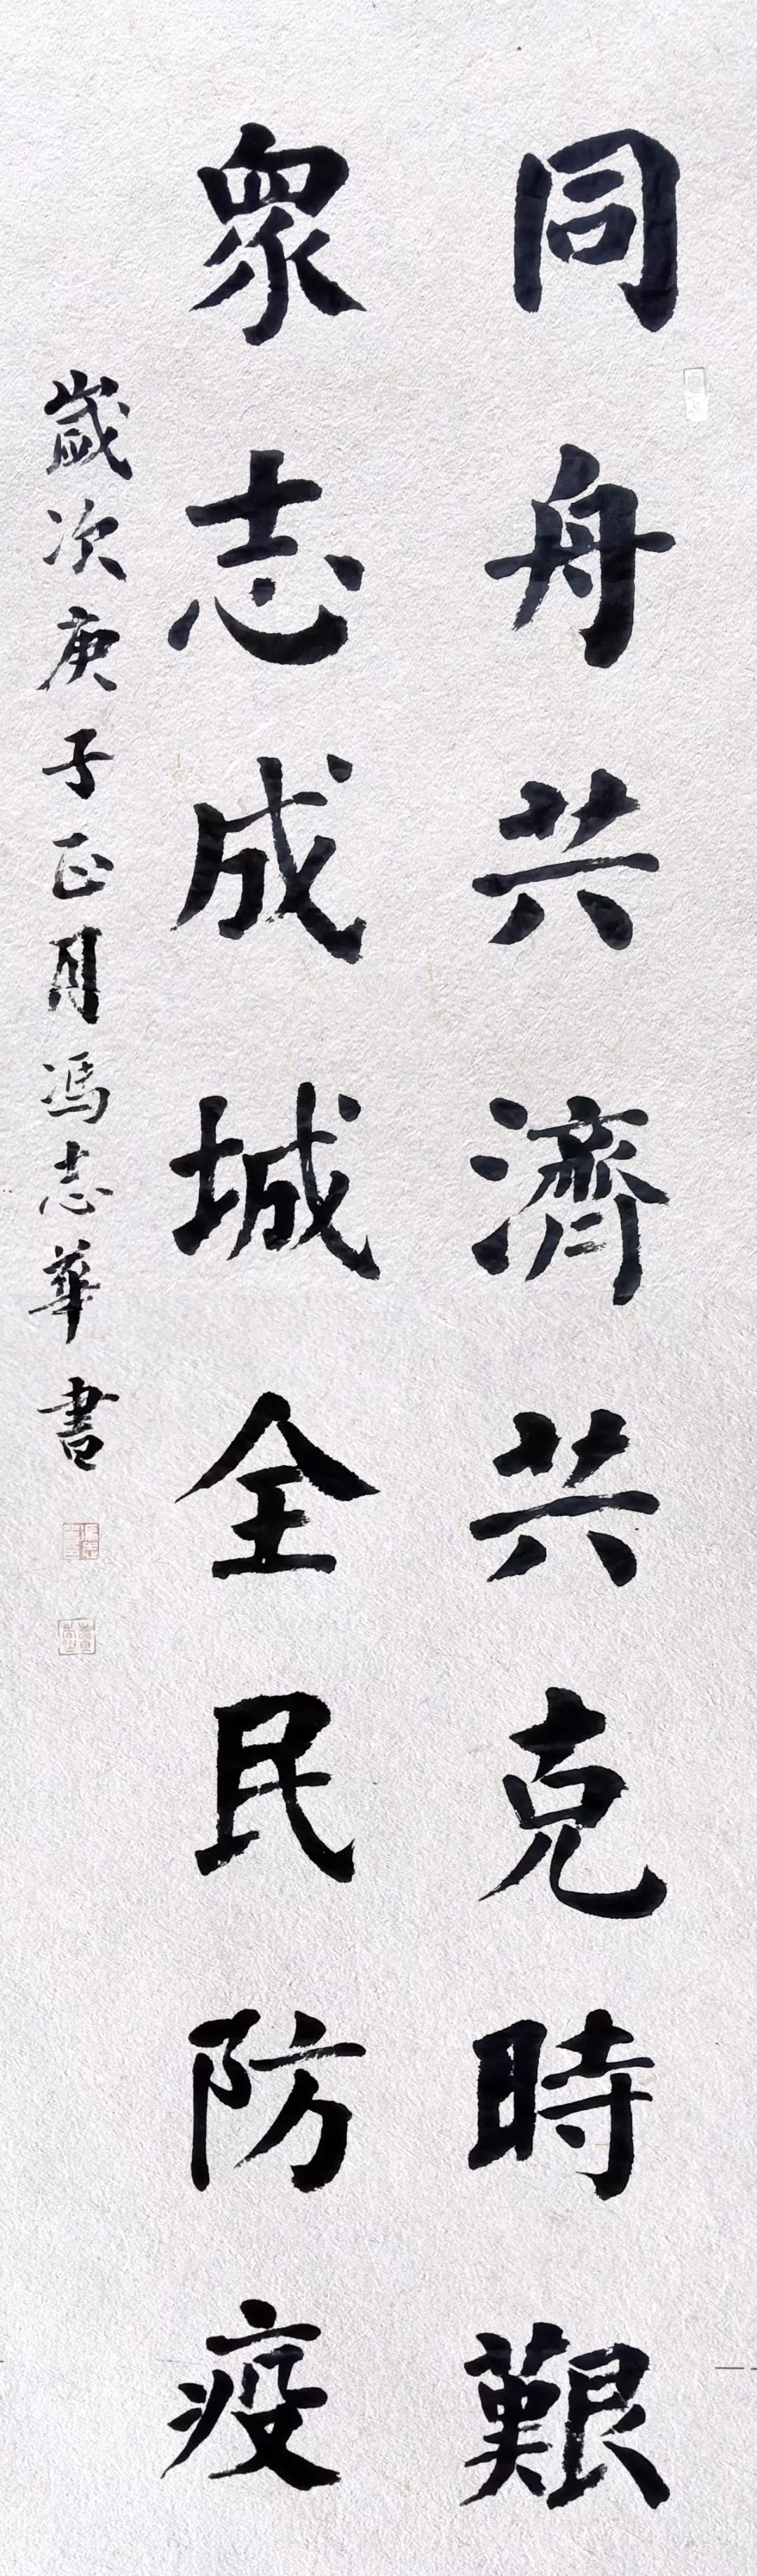 同舟共濟共克時艱
眾志成城全民防疫
歲次庚子正月馮志華書